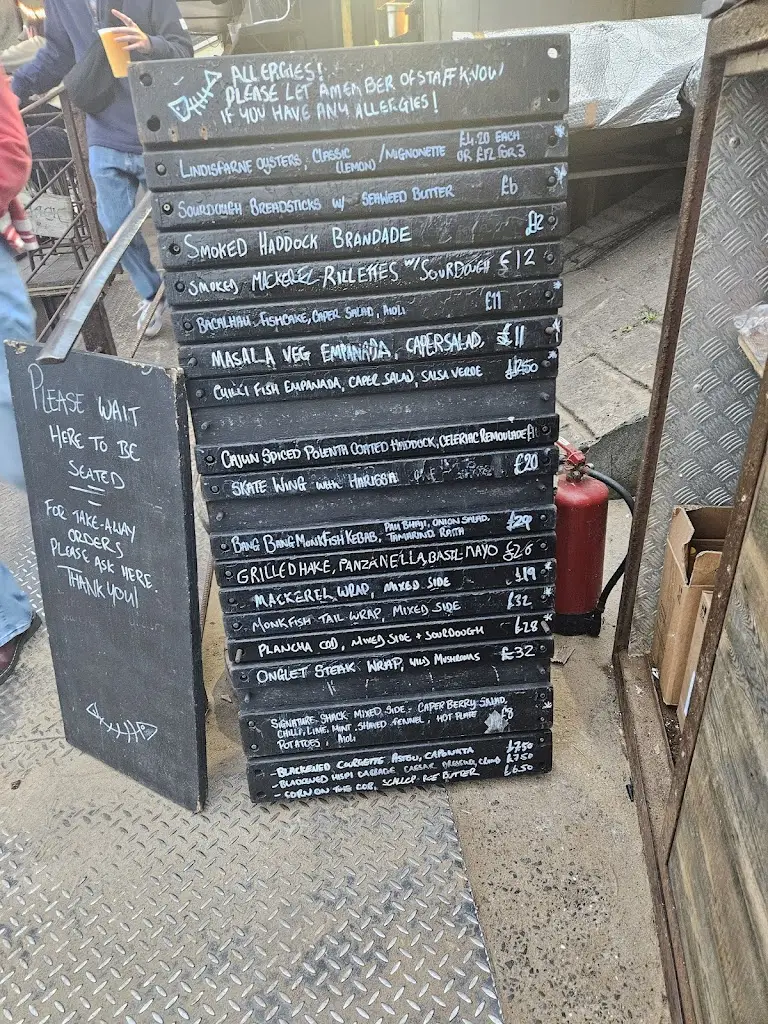 ALLERGIES!
PLEASE LET A MEMBER OF STAFF KNOW
IF YOU HAVE ANY ALLERGIES!
LINDISFARNE OYSTERS, CLASSIC (LEMON) / MIGNONETTE £4.20 EACH OR £12 FOR 3
SOURDOUGH BREADSTICKS W/ SEAWEED BUTTER £6
SMOKED HADDOCK BRANDADE
SMOKED MACKEREL RILLETTES W/ SOURDOUGH £12
BACALHAU FISHCAKE, CAPER SALAD, AIOLI £11
MASALA VEG EMPANADA, CAPER SALAD, £11
CHILLI FISH EMPANADA, CAPER SALAD, SALSA VERDE £12.50
CAJUN SPICED POLENTA COATED HADDOCK, CELERIAC REMOULADE
SKATE WING with HARISSA £20
BANG BANG MONKFISH KEBAB, PAU BHAJI, ONION SALAD,
TAMARIND RAITA
GRILLED HAKE, PANZANELLA, BASIL MAYO £26
MACKEREL WRAP, MIXED SIDE £19
MONKFISH TAIL WRAP, MIXED SIDE £32
PLANCHA COD, MIXED SIDE + SOURDOUGH £28
ONGLET STEAK WRAP, WILD MUSHROOMS £32
SIGNATURE SHACK MIXED SIDE - CAPER BERRY SALAD,
CHILLI, LIME, MINT, SHAVED FENNEL, HOT PLATE £8
POTATOES, AIOLI
- BLACKENED COURGETTE, CAPONATA £7.50
- BLACKENED HISPI CABBAGE CAESAR DRESSING, CRUMB £7.50
- CORN ON THE COB, SCALLOP ROE BUTTER £6.50
PLEASE WAIT
HERE TO BE
SEATED
FOR TAKE-AWAY
ORDERS
PLEASE ASK HERE.
THANK YOU!